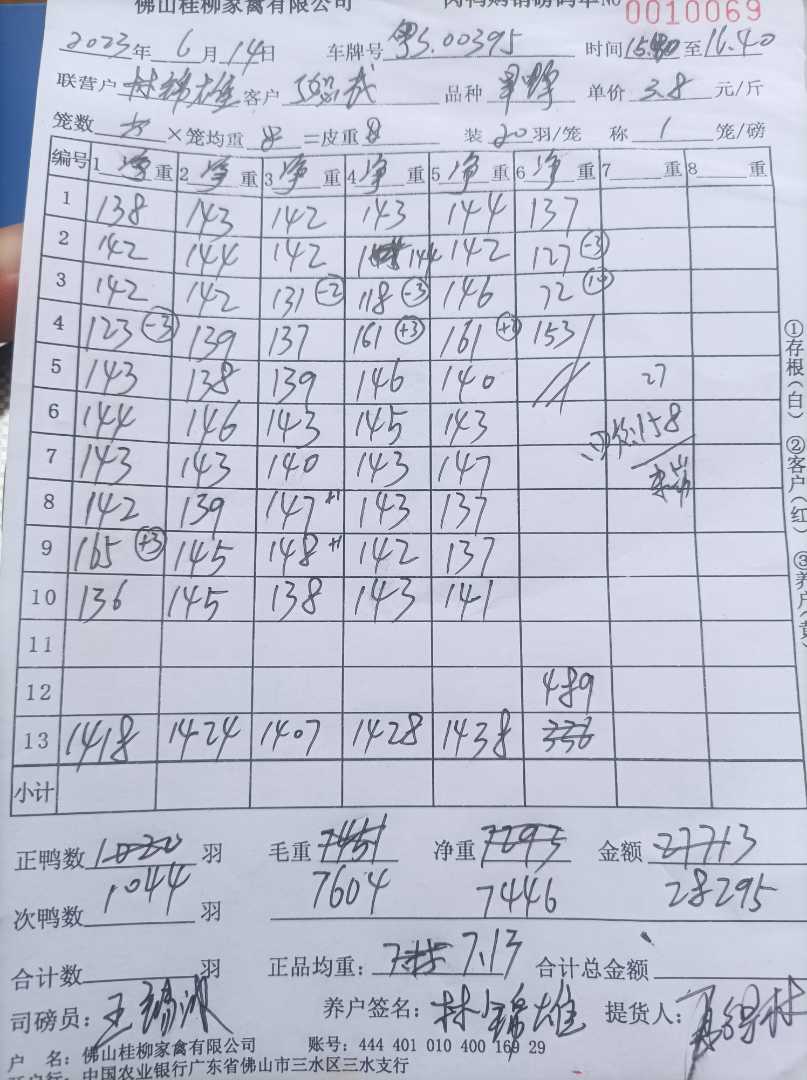 佛山桂柳家禽有限公司 肉鸭购销磅码单№ 0010069
2023年 6月14日 车牌号 粤S.00395 时间15.40至16.40
联营户 林锦雄 客户 品种 单价 3.8 元/斤
笼数 × 笼均重 8 =皮重 8 装 20 羽/笼 称 1 笼/磅
编号 1 净 重 2 净 重 3 净 重 4 净 重 5 净 重 6 净 重 7 重 8 重
1 138 143 142 143 144 137
2 142 144 142 144 142 127 (-3)
3 142 142 131 (-2) 118 (-3) 146 72
4 123 (-3) 139 137 161 (+3) 161 153
5 143 138 139 146 140 27
6 144 146 143 145 143 158
7 143 143 140 143 147
8 142 139 147 +1 143 137
9 165 (+3) 145 148 +1 142 137
10 136 145 138 143 141
11
12 489
13 1418 1424 1407 1428 1438 336
小计
正鸭数 1020 羽 毛重 7451 净重 7293 金额 27713
1044 7604 7446 28295
次鸭数 羽
合计数 羽 正品均重: 7.13 合计总金额
司磅员: 养户签名: 林锦雄 提货人:
户 名: 佛山桂柳家禽有限公司 账号: 444 401 010 400 169 29
开户行: 中国农业银行广东省佛山市三水区三水支行
①存根(白) ②客户(红) ③养户(黄)